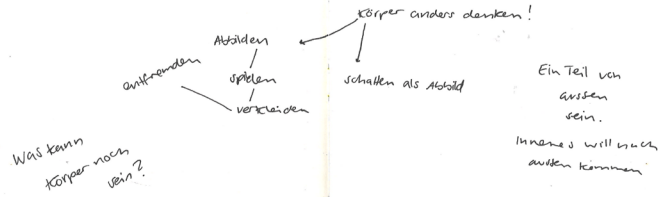 Körper anders denken!
Abbilden
entfremden
spielen
verkleiden
schatten als Abbild
Ein Teil von
aussen
sein.
Inneres will nach
aussen kommen
Was kann
Körper noch
sein?